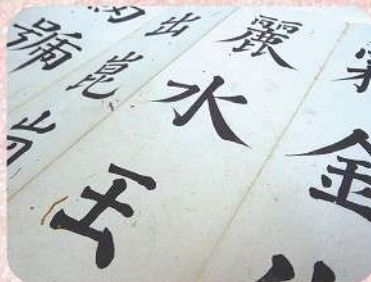 金
麗水玉
出崑
號